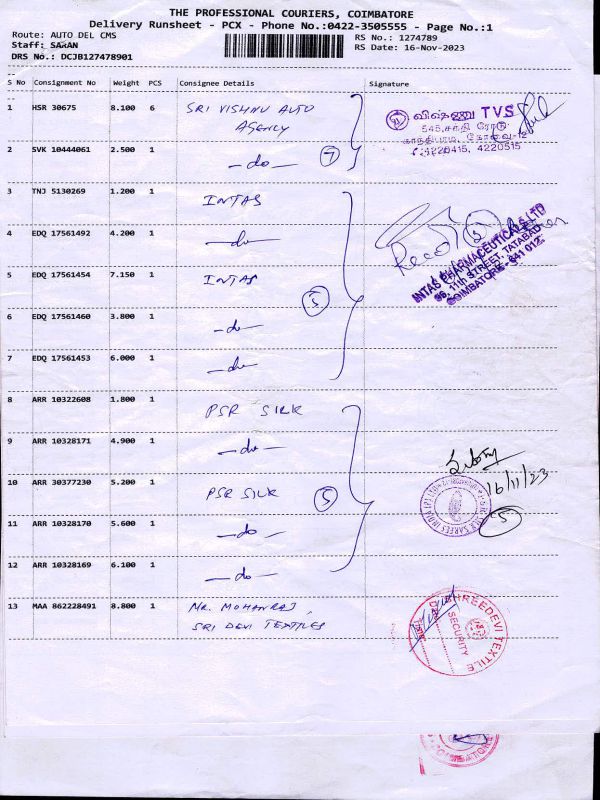 THE PROFESSIONAL COURIERS, COIMBATORE
Delivery Runsheet - PCX - Phone No.:0422-3505555 - Page No.:1
Route: AUTO DEL CMS
RS No.: 1274789
Staff: SARAN
RS Date: 16-Nov-2023
DRS No.: DCJB127478901
S No Consignment No Weight PCS Consignee Details Signature
1 HSR 30675 8.100 6 SRI VISHNU AUTO AGENCY
விஷ்ணு TVS
545, சத்தி ரோடு
காந்திபுரம், கோவை-12
4220415, 4220515
2 SVK 10444061 2.500 1 -do- 7
3 TNJ 5130269 1.200 1 INTAS
4 EDQ 17561492 4.200 1 -do-
INTAS PHARMACEUTICALS LTD
11th STREET, TATABAD
COIMBATORE - 641 012.
5 EDQ 17561454 7.150 1 INTAS 5
6 EDQ 17561460 3.800 1 -do-
7 EDQ 17561453 6.000 1 -do-
8 ARR 10322608 1.800 1 PSR SILK
9 ARR 10328171 4.900 1 -do-
10 ARR 30377230 5.200 1 PSR SILK 5
16/11/23
11 ARR 10328170 5.600 1 -do-
SILK SAREES INDIA (P) LTD
5
12 ARR 10328169 6.100 1 -do-
13 MAA 862228491 8.800 1 MR. MOHANRAJ,
SRI DEVI TEXTILES
SHREEDEVI TEXTILE
SECURITY